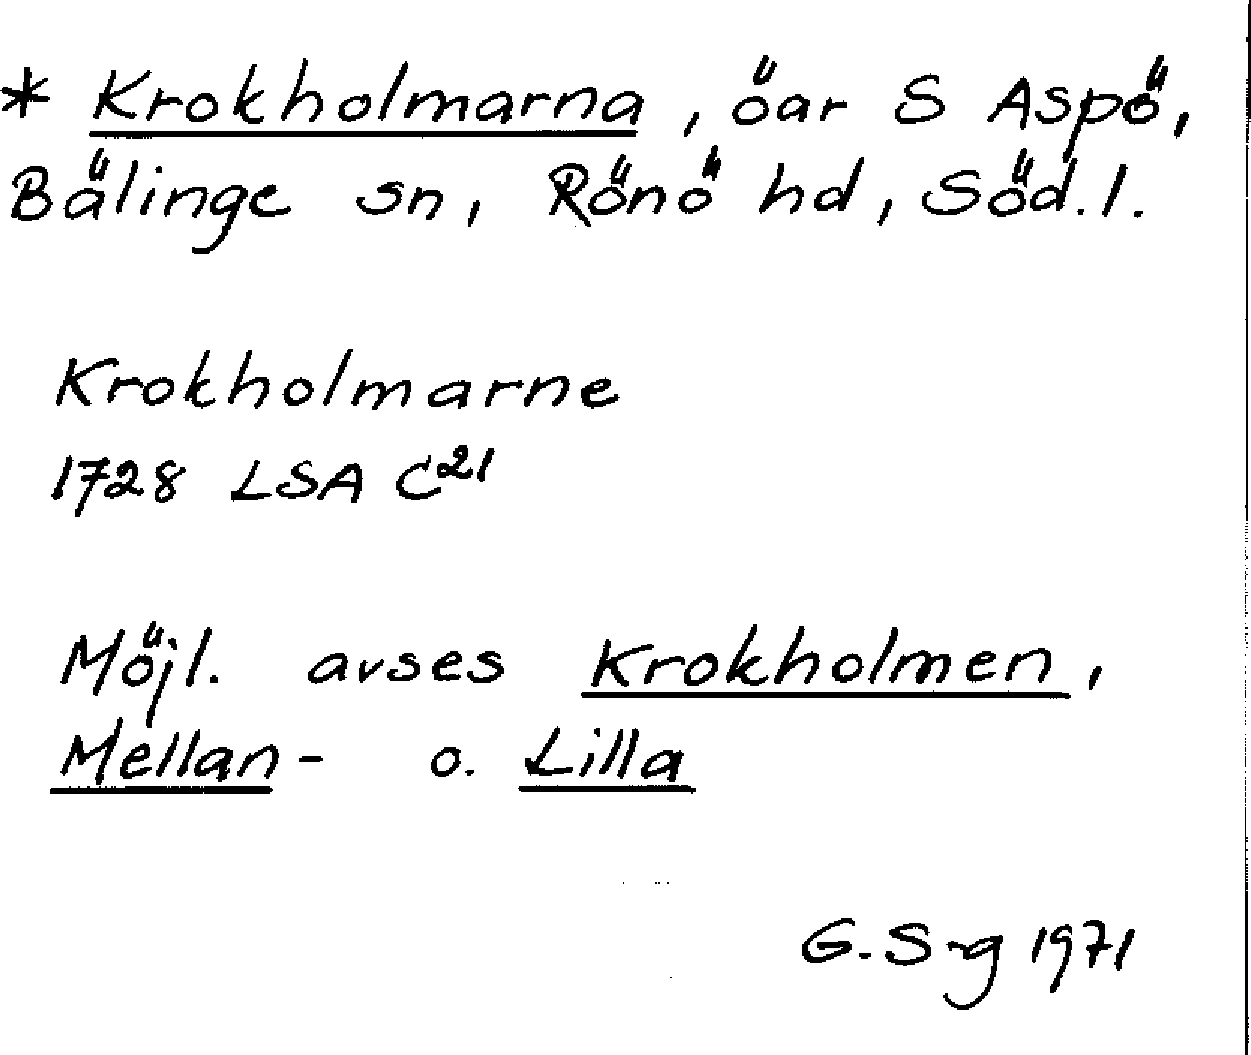 * Krokholmarna, öar S Aspö,
Bälinge sn, Rönö hd, Söd.l.
Krokholmarne
1728 LSA C21
Möjl. avses Krokholmen,
Mellan- o. Lilla
G. S-g 1971